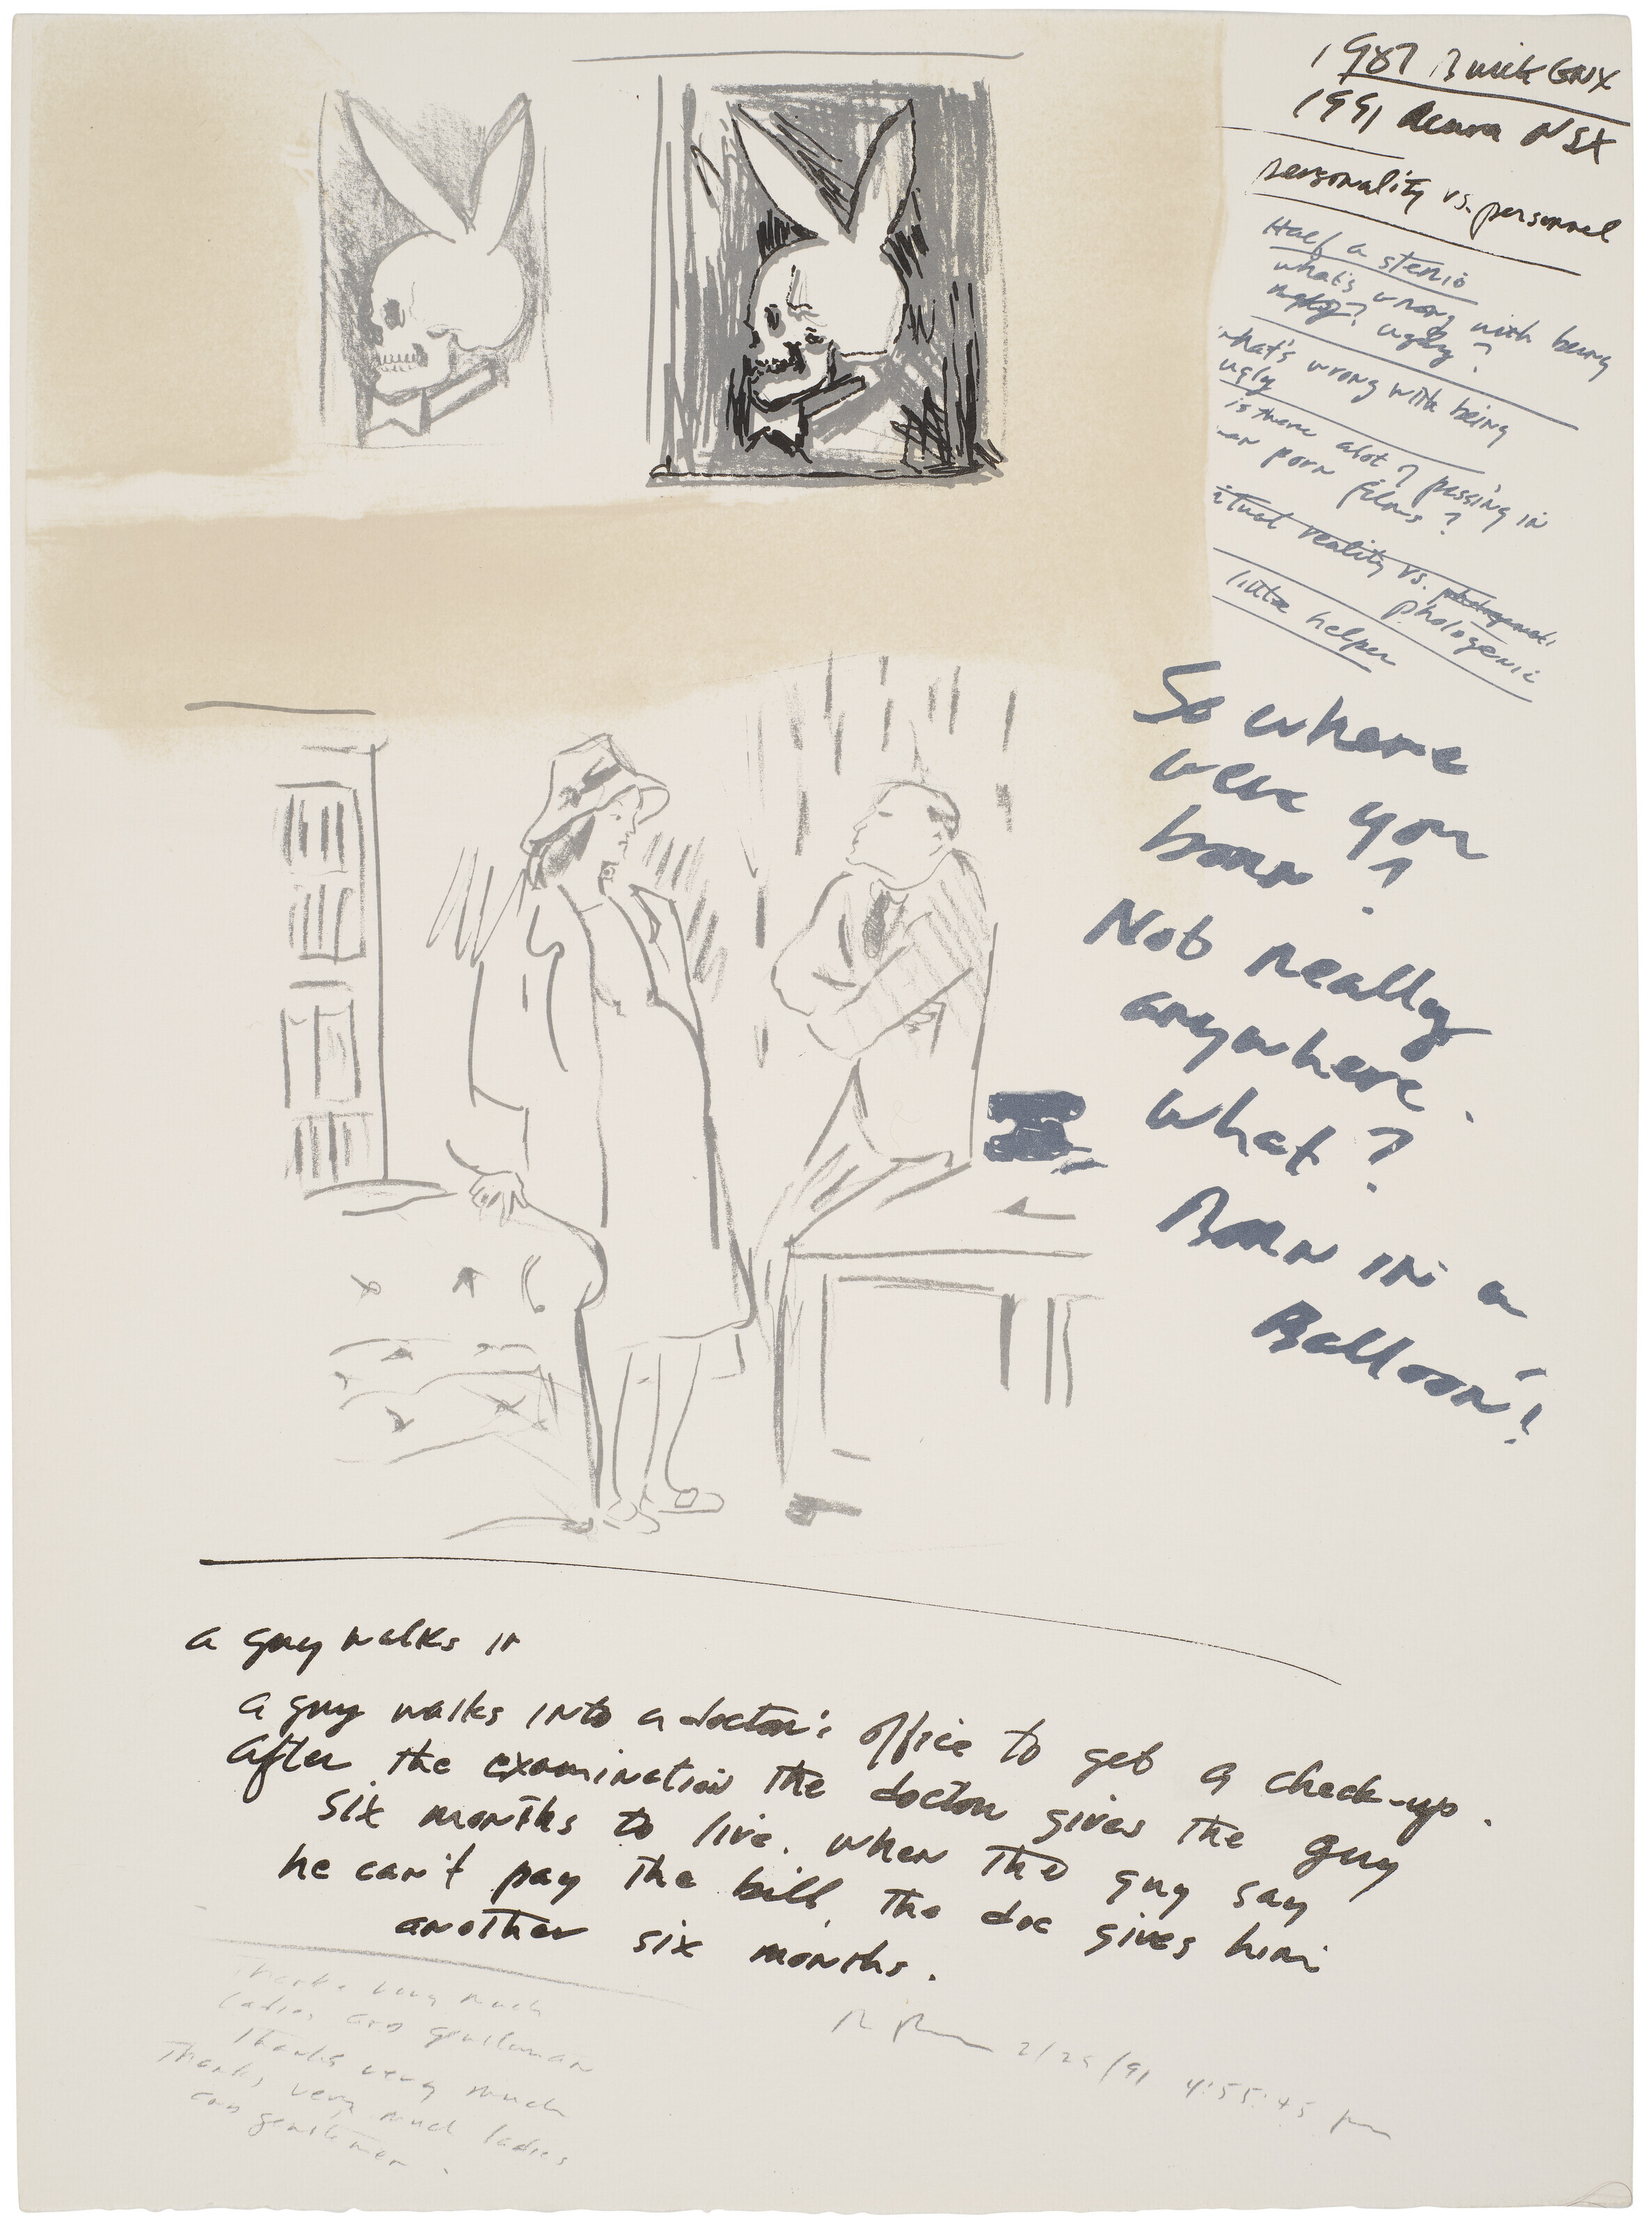 1987 Buick GNX
1991 Acura NSX
personality vs. personnel
Half a stenio
what's wrong with being
ugly? ugly?
what's wrong with being
ugly
is there alot of passing in
porn films?
reality vs.
photogenic
little helper
So where
were you
born?
Not really
anywhere.
What?
Born in a
Balloon?
a guy walks in
a guy walks into a doctor's office to get a check-up.
After the examination the doctor gives the guy
six months to live. When the guy say
he can't pay the bill, the doc gives him
another six months.
Thanks very much
ladies and gentleman
Thanks very much
Thanks very much ladies
and gentlemen.
2/25/91 4:55:45 pm